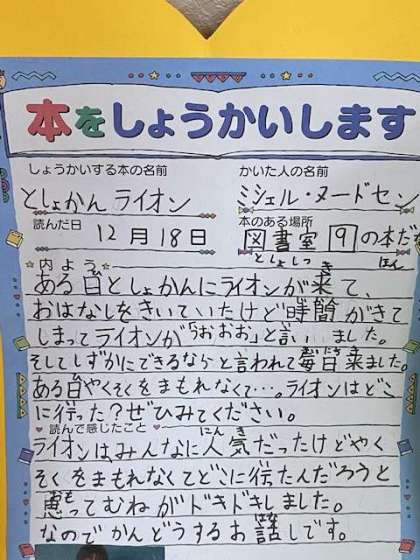 本をしょうかいします
しょうかいする本の名前 かいた人の名前
としょかんライオン ミシェル・ヌードセン
読んだ日 本のある場所
12月18日 図書室 9 の本だ
としょしつ き ほん
☆内よう☆
ある日としょかんにライオンが来て、
おはなしをきいていたけど時間がきて
しまってライオンが「おおお」と言いました。
そしてしずかにできるならと言われて毎日来ました。
ある日やくそくをまもれなくて…。ライオンはどこ
に行った?ぜひみてください。
読んで感じたこと
にん き
ライオンはみんなに人気だったけどやく
そくをまもれなくてどこに行たんだろうと
おも
思ってむねがドキドキしました。
なのでかんどうするお話しです。